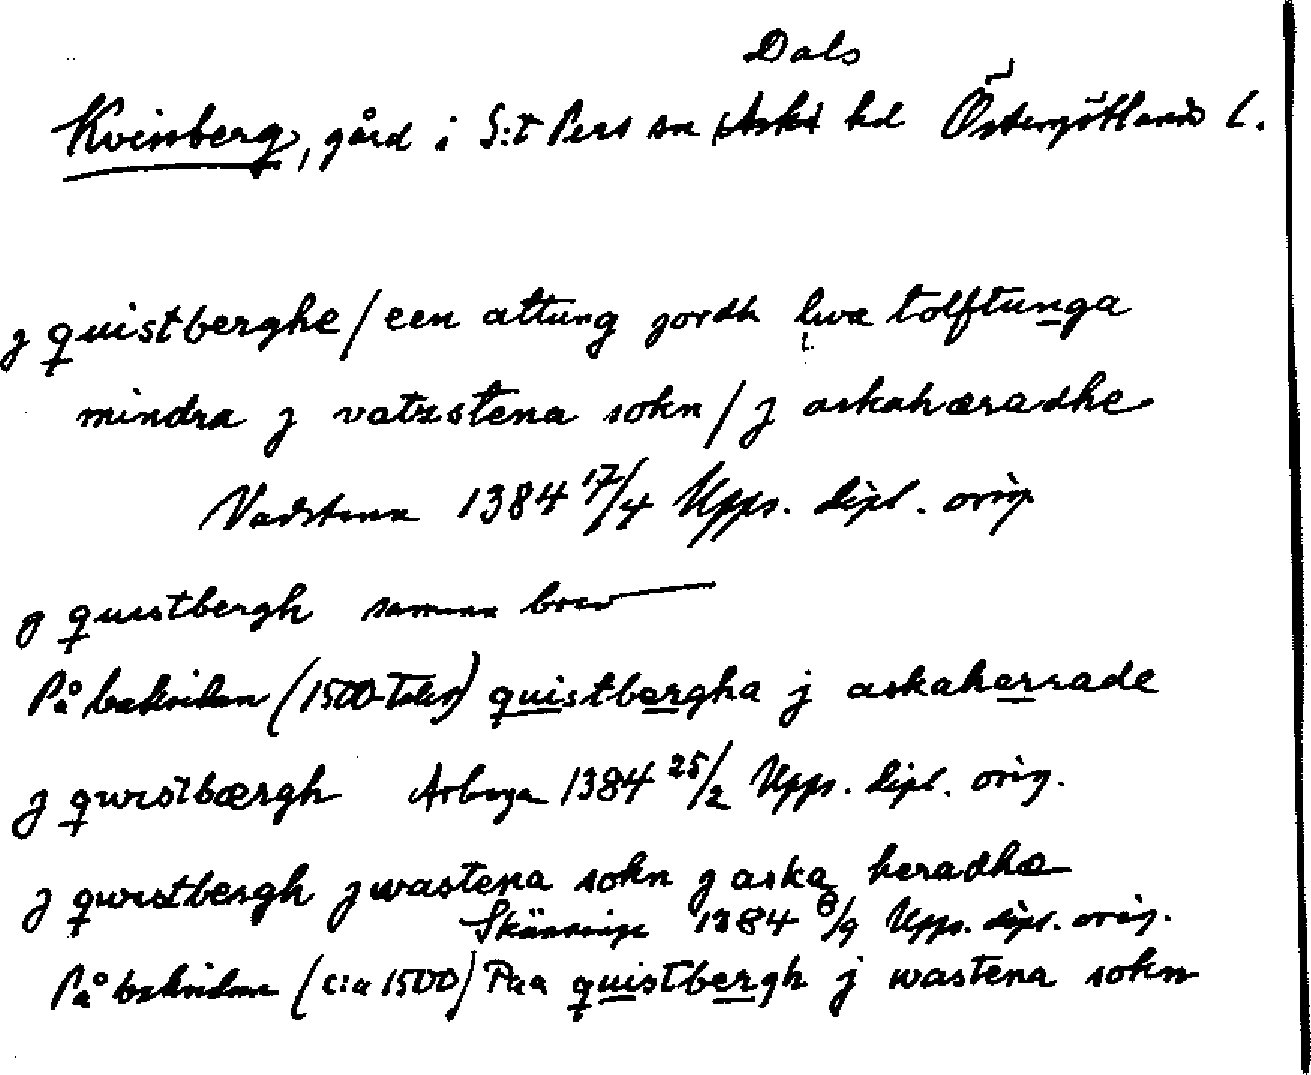 Dals
Kvinberg, gård i S:t Pers sn Aska hd Östergötlands l.
j quistberghe / een attung jordh hwa tolftunga
mindra j vatzstena sokn / j askahæradhe
Vadstena 1384 17/4 Upps. dipl. orig
j quistbergh samma brev
På baksidan (1500-talet) quistbergha j askaherrade
j qwistbærgh Arboga 1384 25/2 Upps. dipl. orig.
j qwistbergh j wastena sokn j aska heradhæ
Skänninge 1384 8/9 Upps. dipl. orig.
På baksidan (c:a 1500) Paa quistbergh j wastena sokn